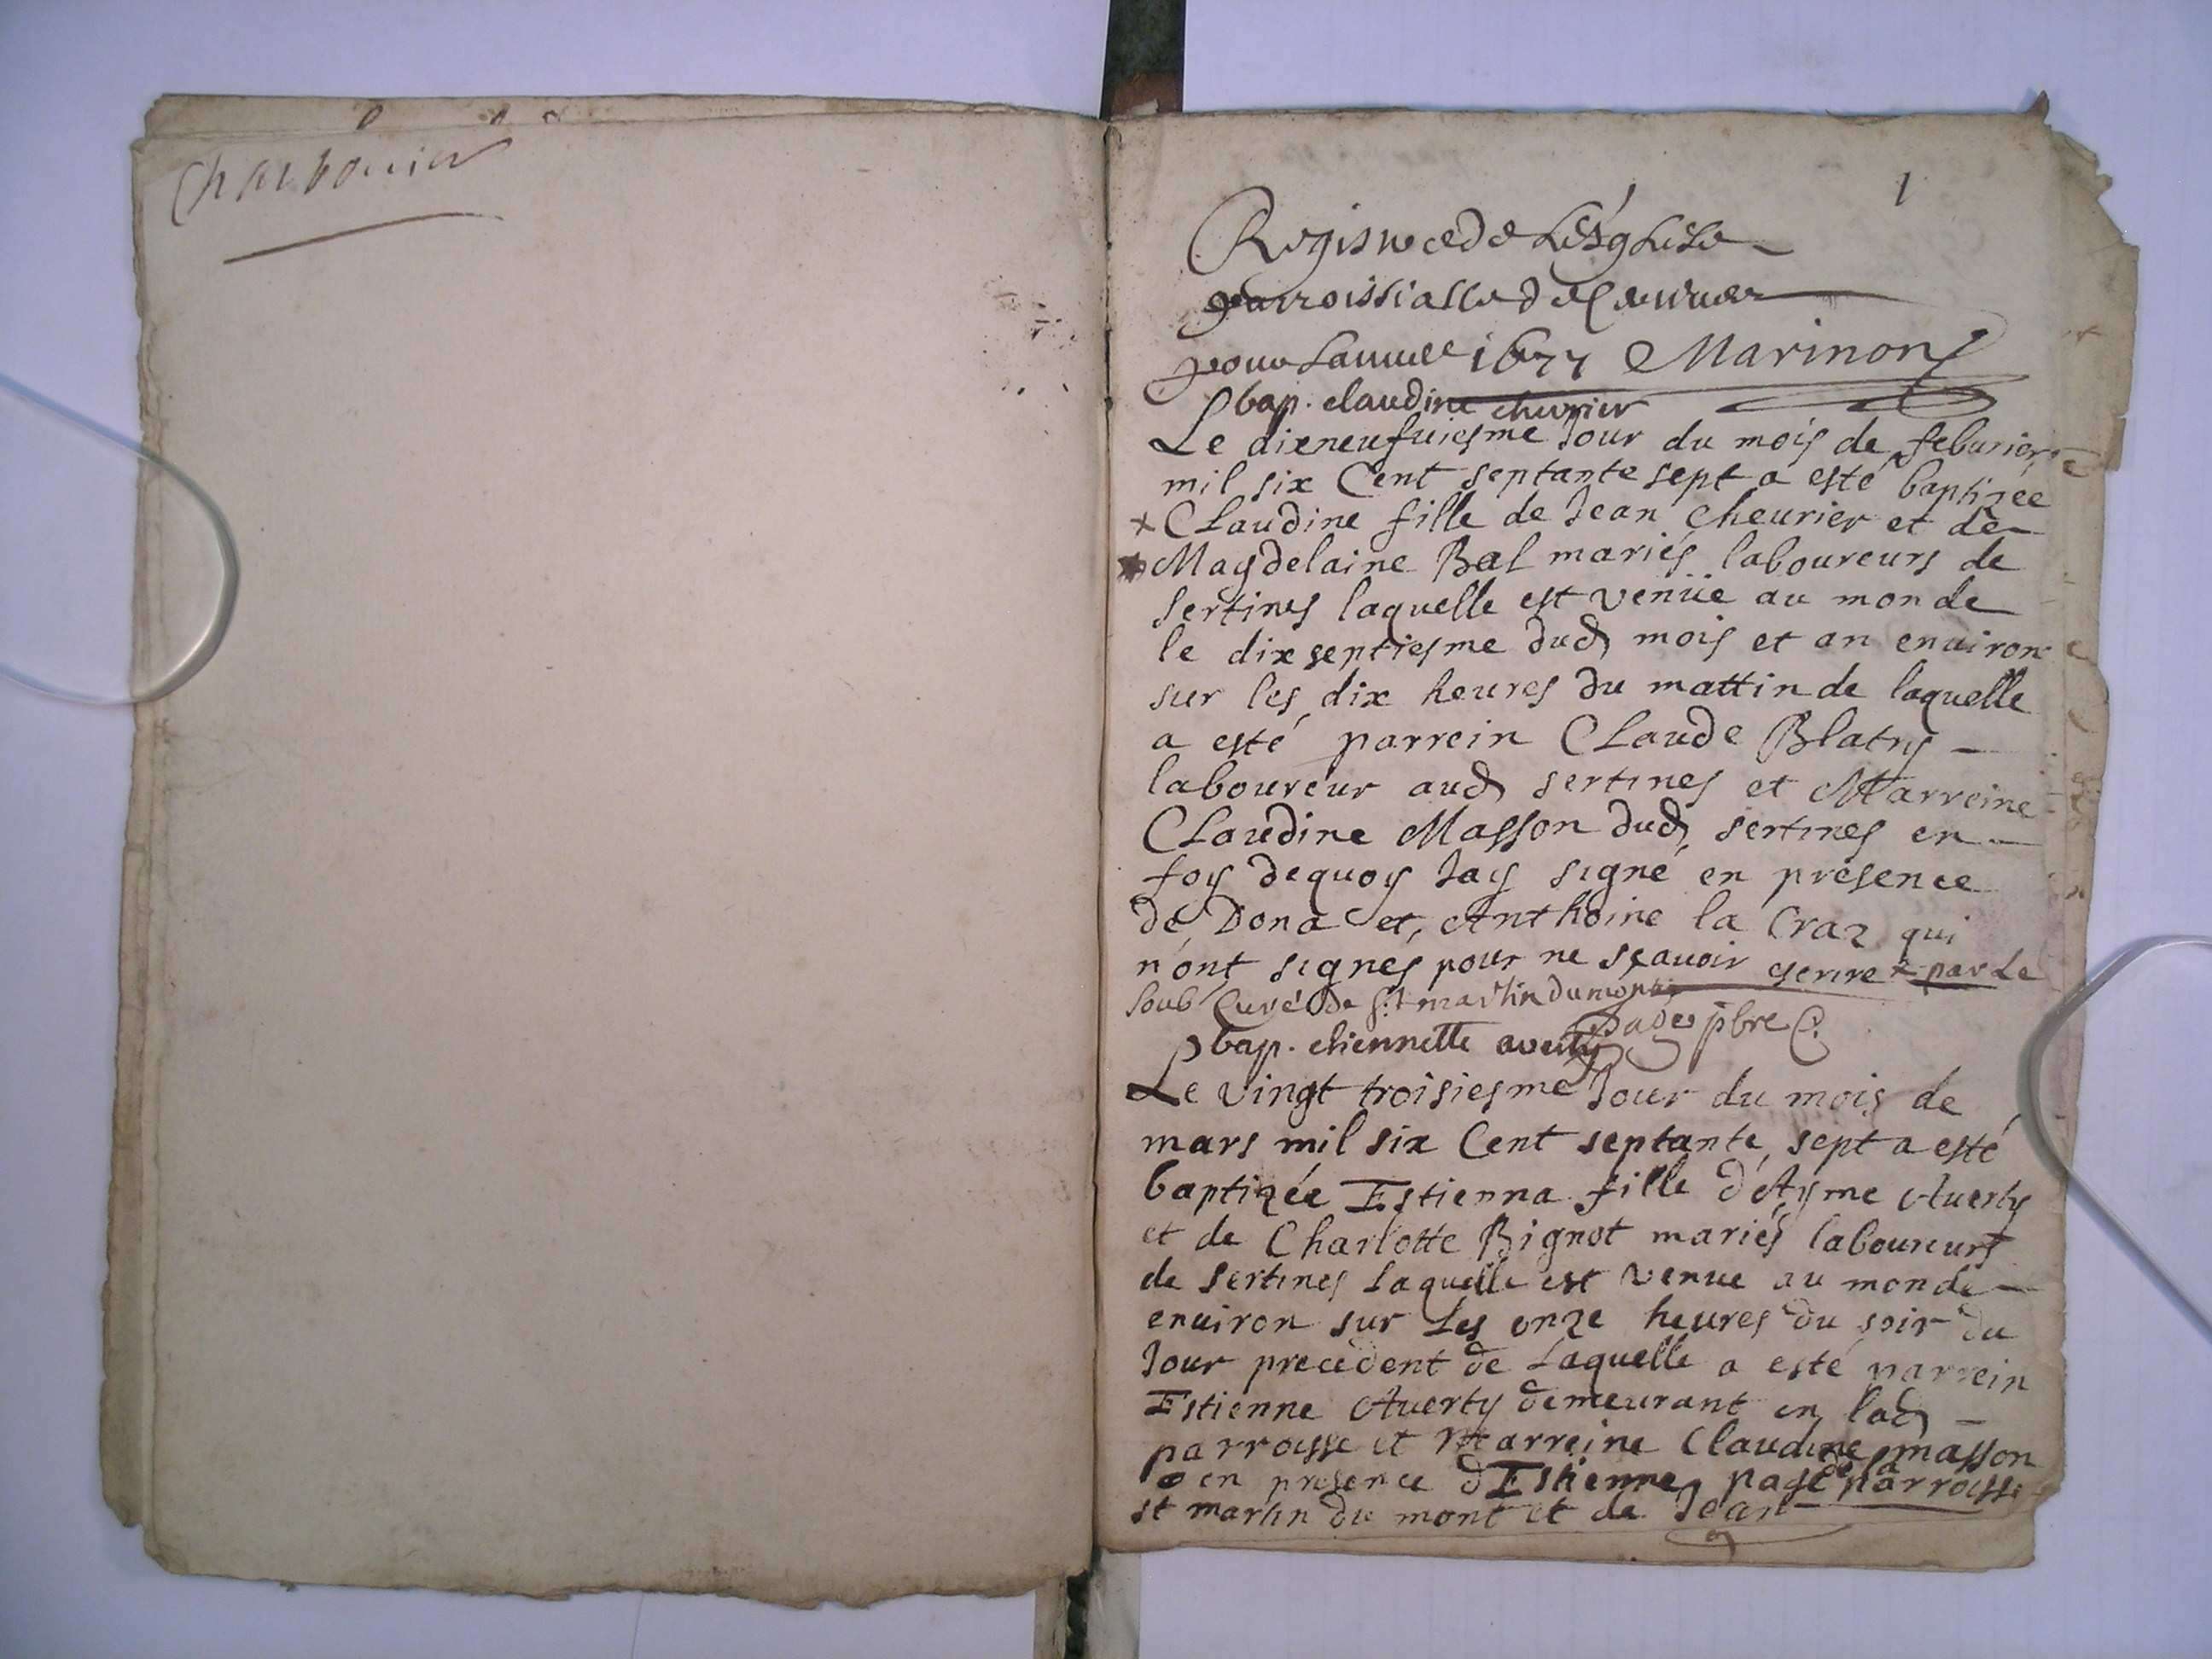 Charbonier
1
Registre de Lesglise
parroissialle de
pour Lannee 1677 Marinon
bap. claudine chevrier
Le dixneufuiesme Jour du mois de feburier
mil six Cent septante sept a esté baptizée
x Claudine fille de Jean Cheurier et de
Magdelaine Bal mariés laboureurs de
sertines laquelle est venüe au monde
le dixseptiesme dud mois et an enuiron
sur les dix heures du mattin de laquelle
a esté parrein Claude Blatry
laboureur aud sertines et Marreine
Claudine Masson dud sertines en
foy dequoy Jay signé en presence
de Dona et Anthoine la Craz qui
n'ont signés pour ne sçauoir escrire x par Le
soub Curé de St martin du mont
pbre C.
bap. etiennette averty
Le vingt troisiesme Jour du mois de
mars mil six Cent septante sept a esté
baptizée Estienna fille d'Ayme Auerty
et de Charlotte Bignot mariés laboureurs
de sertines laquelle est venue au monde
enuiron sur Les onze heures du soir du
Jour precedent de Laquelle a esté parrein
Estienne Auerty demeurant en lad
parroisse et Marreine Claudine masson
en presence d'Estienne page de la parroisse
st martin du mont et de Jean